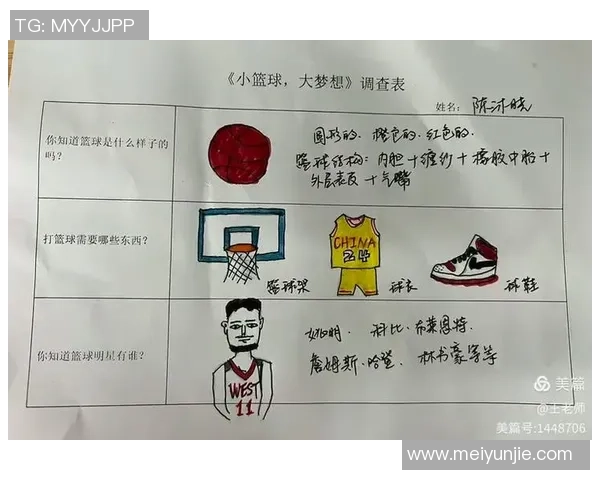 TG: MYYJJPP
《小篮球，大梦想》调查表
姓名：陈沐晓
你知道篮球是什么样子的吗？
圆形的. 橙色的. 红色的.
篮球结构：内胆+缠纱+橡胶中胎+
外层表皮+气嘴
打篮球需要哪些东西？
CHINA
24
篮球架
球衣
球鞋
你知道篮球明星有谁？
WEST
11
姚明. 科比.布莱恩特.
詹姆斯.哈登. 林书豪等等
美篇
@王老师
美篇号:1448706
www.meiyunjie.com